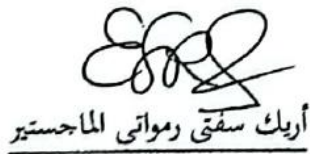 أريك سفتى رمواتى الماجستير